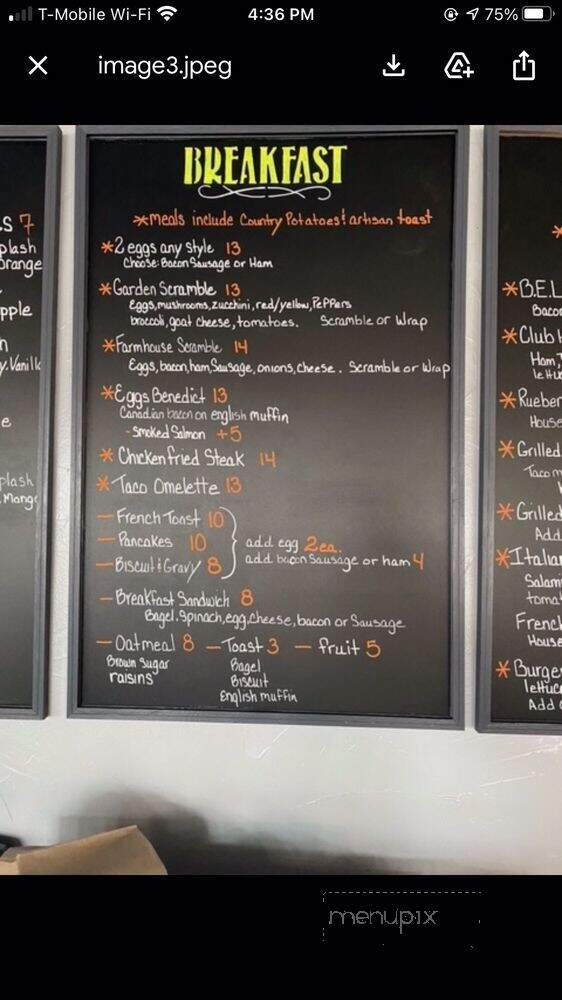 T-Mobile Wi-Fi 4:36 PM 75%
image3.jpeg
BREAKFAST
*meals include Country Potatoes & artisan toast
*2 eggs any style 13
Choose Bacon Sausage or Ham
*Garden Scramble 13
Eggs, mushrooms, zucchini, red/yellow, PePPers
broccoli, goat cheese, tomatoes. Scramble or Wrap
*Farmhouse Scramble 14
Eggs, bacon, ham, Sausage, onions, cheese. Scramble or Wrap
*Eggs Benedict 13
Canadian bacon on english muffin
- Smoked Salmon +5
* Chicken fried Steak 14
* Taco Omelette 13
- French Toast 10
- Pancakes 10
- Biscuit & Gravy 8
add egg 2ea.
add bacon Sausage or ham 4
- Breakfast Sandwich 8
Bagel, Spinach, egg, Cheese, bacon or Sausage
- Oatmeal 8
Brown Sugar
raisins
- Toast 3
Bagel
Biscuit
English muffin
- fruit 5
s 7
plash
orange
pple
n
y. Vanilla
e
plash
Mango
*
*B.E.L
Bacon
*Club
Ham, T
lettu
*Rueben
House
*Grilled
Taco m
*Grilled
Add
*Italian
Salam
toma
French
House
*Burger
lettuc
Add
menupix